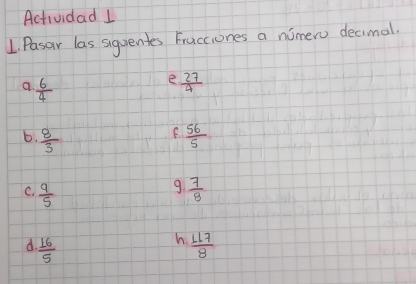 Actividad 1
1. Pasar las siguientes Fracciones a número decimal.
a. 6/4
e. 27/4
b. 8/3
f. 56/5
c. 9/5
g. 7/8
d. 16/5
h. 117/8